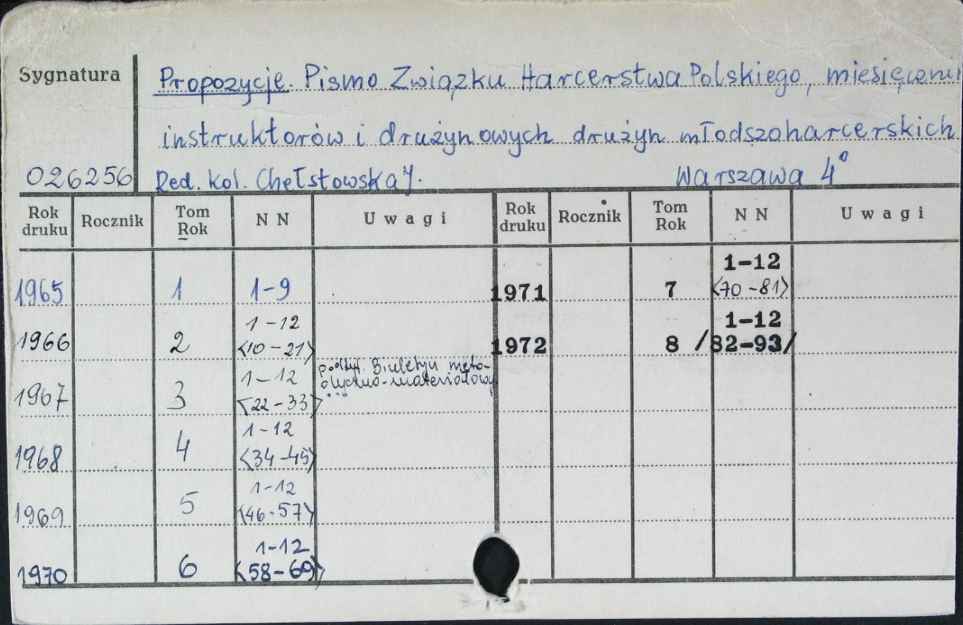 Sygnatura
Propozycje. Pismo Związku Harcerstwa Polskiego, miesięcznik
instruktorów i drużynowych drużyn młodszoharcerskich
026256 Red. kol. Chełstowska Warszawa 4°
Rok druku Rocznik Tom Rok N N Uwagi Rok druku Rocznik Tom Rok N N Uwagi
1965 1 1-9 1971 7 1-12 <70-81>
1966 2 1-12 <10-21> 1972 8 1-12 /82-93/
1967 3 1-12 <22-33> podtyt. Biuletyn meto-
dyczno-materiałowy
...
1968 4 1-12 <34-45>
1969 5 1-12 <46-57>
1970 6 1-12 <58-69>